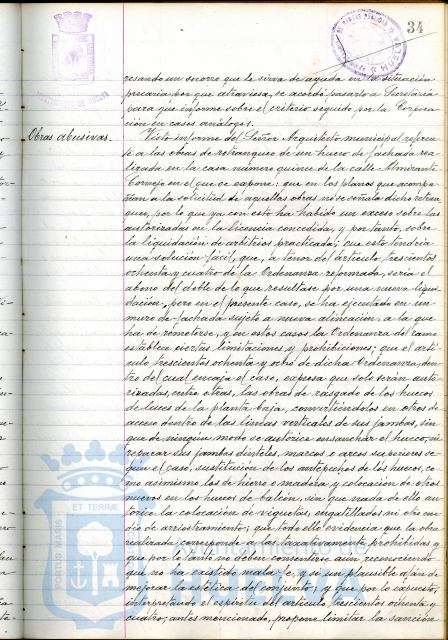 34
resando un socorro que le sirva de ayuda en la situación
precaria por que atraviesa, se acordó pasarlo a Secretaría
para que informe sobre el criterio seguido por la Corpora-
ción en casos análogos.
Obras abusivas.
Visto informe del Señor Arquitecto municipal referen-
te a las obras de retranqueo de un hueco de fachada rea-
lizada en la casa número quince de la calle Almirante
Cornejo en el que se expone: que en los planos que acompa-
ñan a la solicitud de aquellas obras no se señala dicho retran-
queo, por lo que ya con esto ha habido un exceso sobre las
autorizadas en la licencia concedida, y por tanto, sobre
la liquidación de arbitrios practicada; que esto tendría
una solución fácil, que, a tenor del artículo trescientos
ochenta y cuatro de la Ordenanza reformada, sería el
abono del doble de lo que resultase por una nueva liqui-
dación, pero en el presente caso, se ha ejecutado en un
muro de fachada sujeto a nueva alineación, a la que
ha de remeterse, y en estos casos la Ordenanza del ramo
establece ciertas limitaciones y prohibiciones; que el artí-
culo trescientos ochenta y ocho de dicha Ordenanza, den-
tro del cual encaja el caso, expresa que solo serán auto-
rizadas, entre otras, las obras de rasgado de los huecos
de luces de la planta baja, convirtiéndolos en otros de
acceso dentro de las líneas verticales de sus jambas, sin
que de ningún modo se autorice ensanchar el hueco, ni
reparar sus jambas dinteles, marcos o arcos superiores se-
gún el caso, sustitución de los antepechos de los huecos, co-
mo asimismo los de hierro o madera, y colocación de otros
nuevos en los huecos de balcón, sin que nada de ello au-
torice la colocación de viguetas, engatillados ni otro me-
dio de arriostramiento; que todo ello evidencia que la obra
realizada corresponde a las taxativamente prohibidas y
que por lo tanto no deben consentirse aun reconociendo
que no ha existido mala fe, y sí un plausible afán de
mejorar la estética del conjunto; y que por lo expuesto,
interpretando el espíritu del artículo trescientos ochenta y
cuatro, antes mencionado, propone limitar la sanción
PORTUS MARIS
ET TERRÆ
Ayuntamiento de